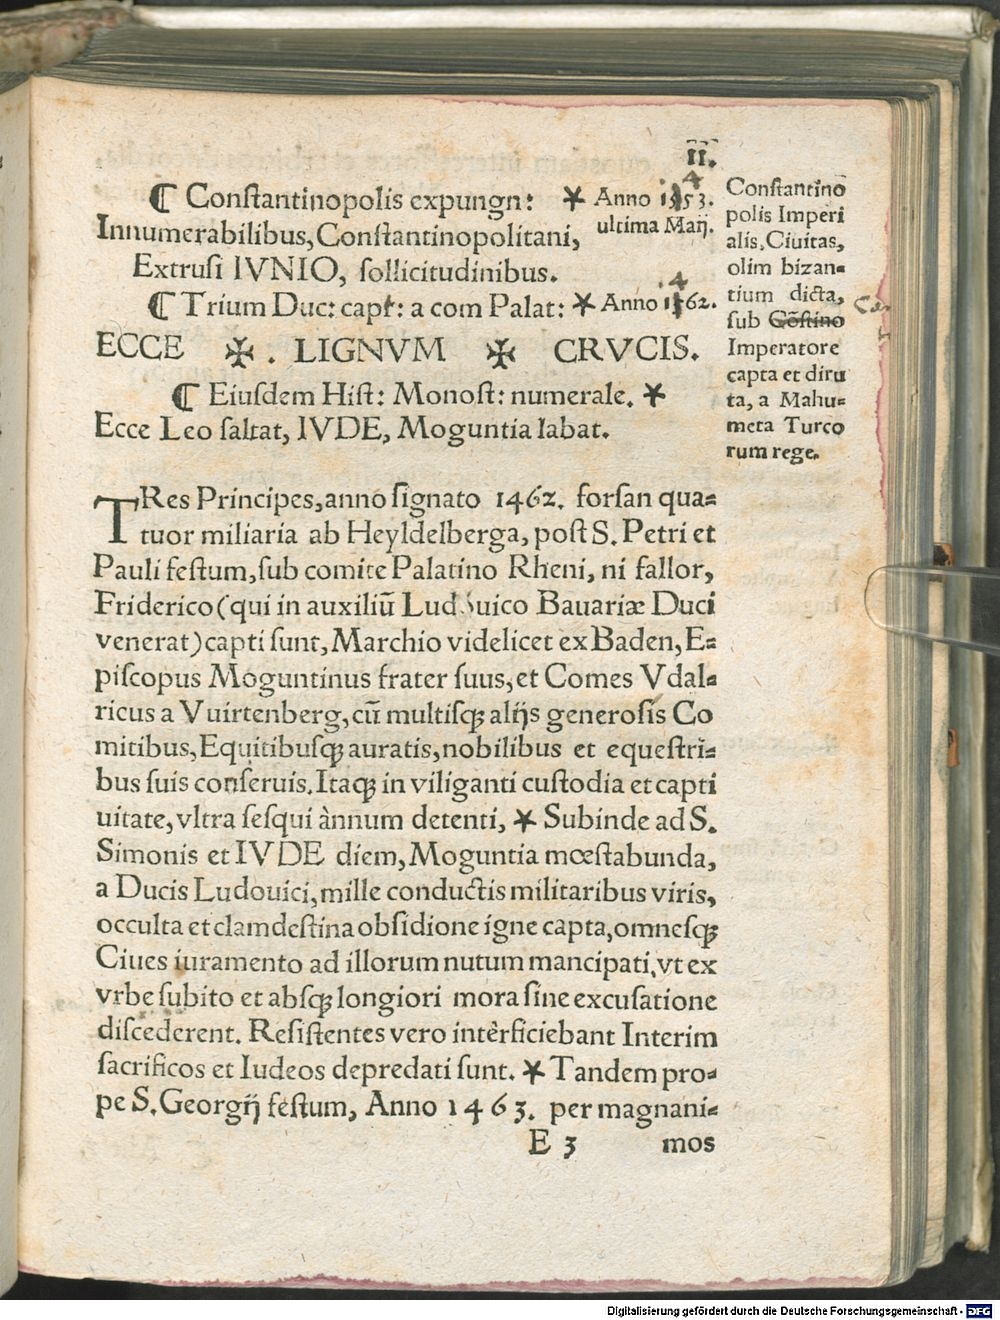 II.
¶ Conſtantinopolis expungn: ✶ Anno 1453.
Innumerabilibus, Conſtantinopolitani, ultima Maij.
Extruſi IVNIO, ſollicitudinibus.
¶ Trium Duc: capt: a com Palat: ✶ Anno 1462.
ECCE ✠. LIGNVM ✠ CRVCIS.
¶ Eiuſdem Hiſt: Monoſt: numerale. ✶
Ecce Leo ſaltat, IVDE, Moguntia labat.
Conſtantino
polis Imperi
alis, Ciuitas,
olim bizan=
tium dicta,
ſub Cōſtino
Imperatore
capta et diru
ta, a Mahu=
meta Turco
rum rege.
TRes Principes, anno ſignato 1462. forſan qua=
tuor miliaria ab Heyldelberga, poſt S. Petri et
Pauli feſtum, ſub comite Palatino Rheni, ni fallor,
Friderico (qui in auxiliū Ludouico Bauariæ Duci
venerat) capti ſunt, Marchio videlicet ex Baden, E=
piſcopus Moguntinus frater ſuus, et Comes Vdal=
ricus a Vuirtenberg, cū multiſqꝫ alijs generoſis Co
mitibus, Equitibuſqꝫ auratis, nobilibus et equeſtri=
bus ſuis conſeruis. Itaqꝫ in viliganti cuſtodia et capti
uitate, vltra ſeſqui ànnum detenti, ✶ Subinde ad S.
Simonis et IVDE diem, Moguntia mœſtabunda,
a Ducis Ludouici, mille conductis militaribus viris,
occulta et clamdeſtina obſidione igne capta, omneſqꝫ
Ciues iuramento ad illorum nutum mancipati, vt ex
vrbe ſubito et abſqꝫ longiori mora ſine excuſatione
diſcederent. Reſiſtentes vero intèrficiebant Interim
ſacrificos et Iudeos depredati ſunt. ✶ Tandem pro=
pe S. Georgij feſtum, Anno 1463. per magnani=
E 3 mos
Digitalisierung gefördert durch die Deutsche Forschungsgemeinschaft - DFG